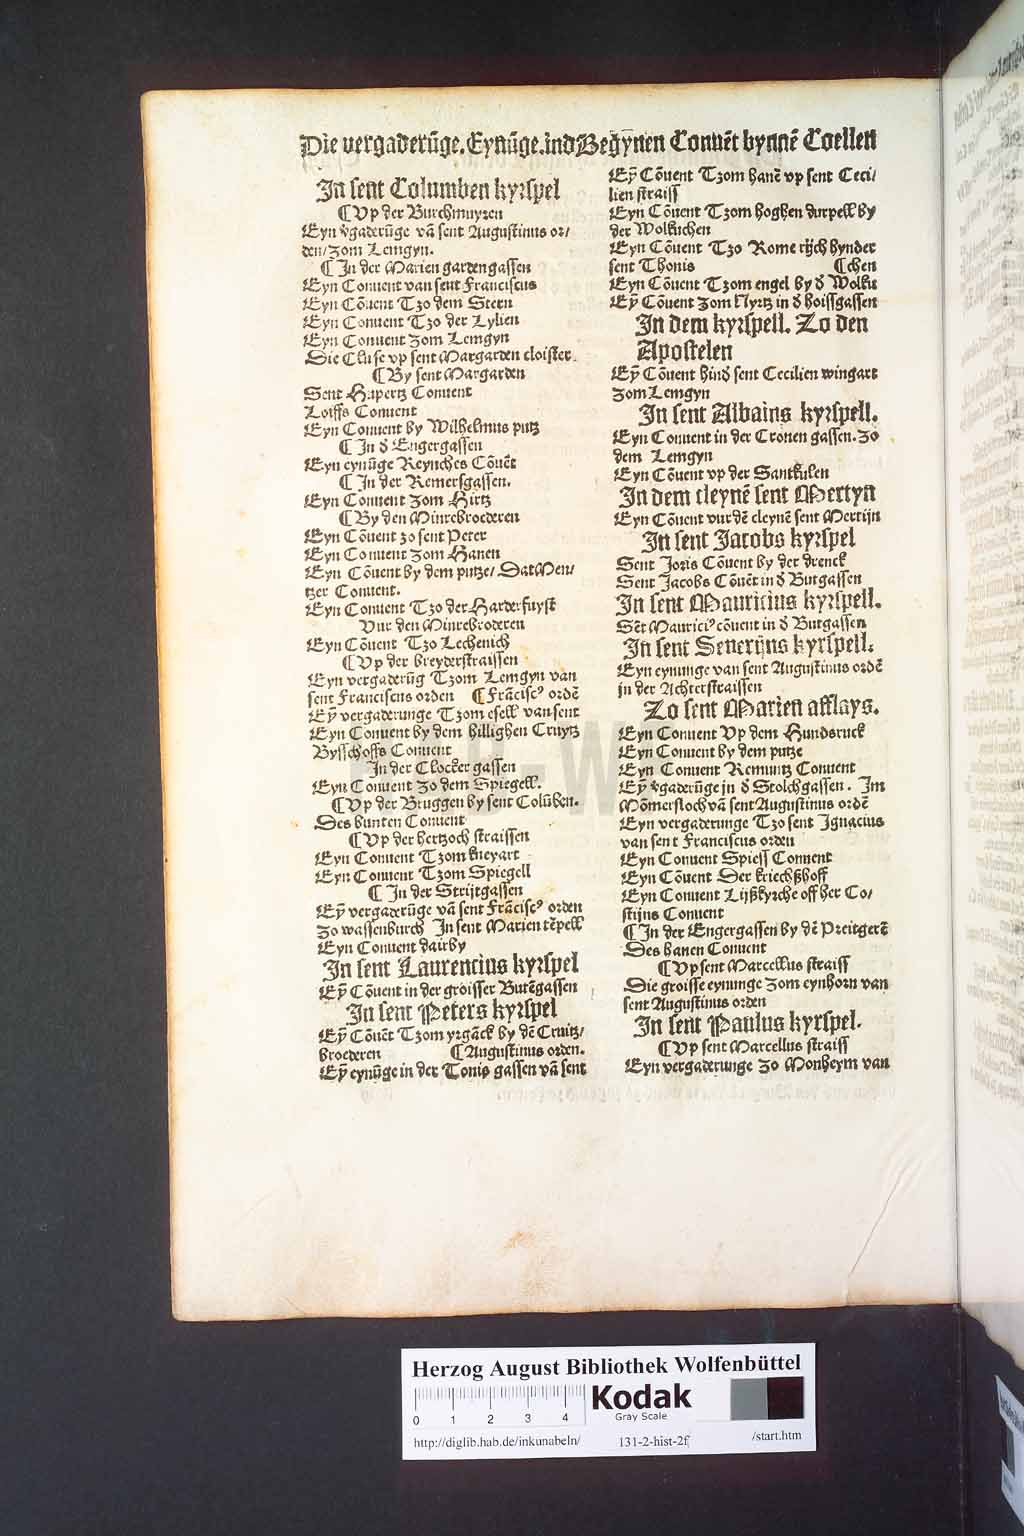 Die vergaderūge. Eynūge. ind Begynen Conuēt bynnē Coellen
In sent Columben kyrspel
¶ Vp der Burchmuyren
Eyn v̄gaderūge vā sent Augustinus or/
den/ zom Lemgyn.
¶ In der Marien garden gassen
Eyn Conuent van sent Franciscus
Eyn Cōuent Tzo dem Stern
Eyn Conuent Tzo der Lylien
Eyn Conuent zom Lemgyn
Die Cluse vp sent Margarden cloister.
¶ By sent Margarden
Sent Hupertz Conuent
Loiffs Conuent
Eyn Conuent by Wilhelmus putz
¶ In d̄ Engergassen
Eyn eynūge Reynches Cōuēt
¶ In der Remersgassen.
Eyn Conuent zom Hirtz
¶ By den Minrebroederen
Eyn Cōuent zo sent Peter
Eyn Conuent zom Hanen
Eyn Cōuent by dem putze/ Dat Men/
tzer Conuent.
Eyn Conuent Tzo der Harderfuyst
Vur den Minrebroderen
Eyn Cōuent Tzo Lechenich
¶ Vp der breyderstraissen
Eyn vergaderūg Tzom Lemgyn van
sent Franciscus orden ¶ Frācisc⁹ ordē
Eȳ vergaderunge Tzom esell van sent
Eyn Conuent by dem billighen Cruytz
Bysschoffs Conuent
In der Clocker gassen
Eyn Conuent Zo dem Spiegell.
¶ Vp der Bruggen by sent Colūben.
Des bunten Conuent
¶ Vp der hertzoch straissen
Eyn Conuent Tzom kneyart
Eyn Conuent Tzom Spiegell
¶ In der Strijtgassen
Eȳ vergaderūge vā sent frācisc⁹ orden
zo wassenburch In sent Marien tēpell
Eyn Conuent dairby
In sent Laurencius kyrspel
Eȳ Cōuent in der groisser Butēgassen
In sent Peters kyrspel
Eȳ Cōuēt Tzom yrgāck by dē Cruitz/
broederen ¶ Augustinus orden.
Eȳ eynūge in der Tonis gassen vā sent
Eȳ Cōuent Tzom hanē vp sent Ceci/
lien straiss
Eyn Cōuent Tzom hoghen durpell by
der Wolkuchen
Eyn Cōuent Tzo Rome rijch hynder
sent Thonis ¶ chen
Eyn Cōuent Tzom engel by d̄ Wolku
Eȳ Cōuent zom Hyrtz in d̄ hoissgassen
In dem kyrspell. Zo den
Apostelen
Eȳ Cōuent hind̄ sent Cecilien wingart
zom Lemgyn
In sent Albains kyrspell.
Eyn Conuent in der Cronen gassen. zo
dem Lemgyn
Eyn Cōuent vp der Santkulen
In dem cleynē sent Mertyn
Eyn Cōuent vur dē cleynē sent Mertijn
In sent Jacobs kyrspel
Sent Joris Cōuent by der drenck
Sent Jacobs Cōuēt in d̄ Butgassen
In sent Mauricius kyrspell.
Sēt Maurici⁹ cōuent in d̄ Butgassen
In sent Seuerijns kyrspell.
Eyn eynunge van sent Augustinus ordē
in der Achterstraissen
Zo sent Marien afflays.
Eyn Conuent Vp dem Hundsruck
Eyn Conuent by dem putze
Eyn Conuent Remuntz Conuent
Eȳ v̄gaderūge in d̄ Stolchgassen. Im
Mōmersloch vā sent Augustinus ordē
Eyn vergaderunge Tzo sent Ignacius
van sent Franciscus orden
Eyn Conuent Spiess Conuent
Eyn Cōuent Der kriechßhoff
Eyn Conuent Lijßkyrche off her Co/
stijns Conuent
¶ In der Engergassen by dē Preitgerē
Des hanen Conuent
¶ Vp sent Marcellus straiss
Die groisse eynunge zom eynhorn van
sent Augustinus orden
In sent Paulus kyrspel.
¶ Vp sent Marcellus straiss
Eyn vergaderunge zo Monheym van
Herzog August Bibliothek Wolfenbüttel
0 1 2 3 4
Kodak
Gray Scale
http://diglib.hab.de/inkunabeln/ 131-2-hist-2f /start.htm